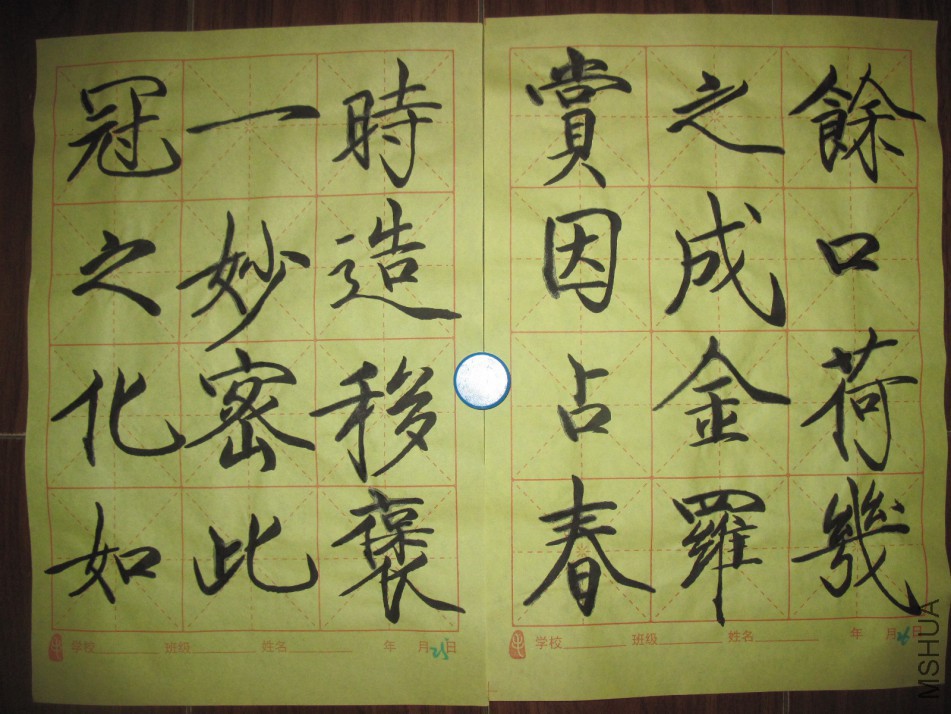 餘口荷幾
之成金羅
賞因占春
時造移褒
一妙密此
冠之化如
学校 班级 姓名 年 月26日
学校 班级 姓名 年 月25日
MSHUA